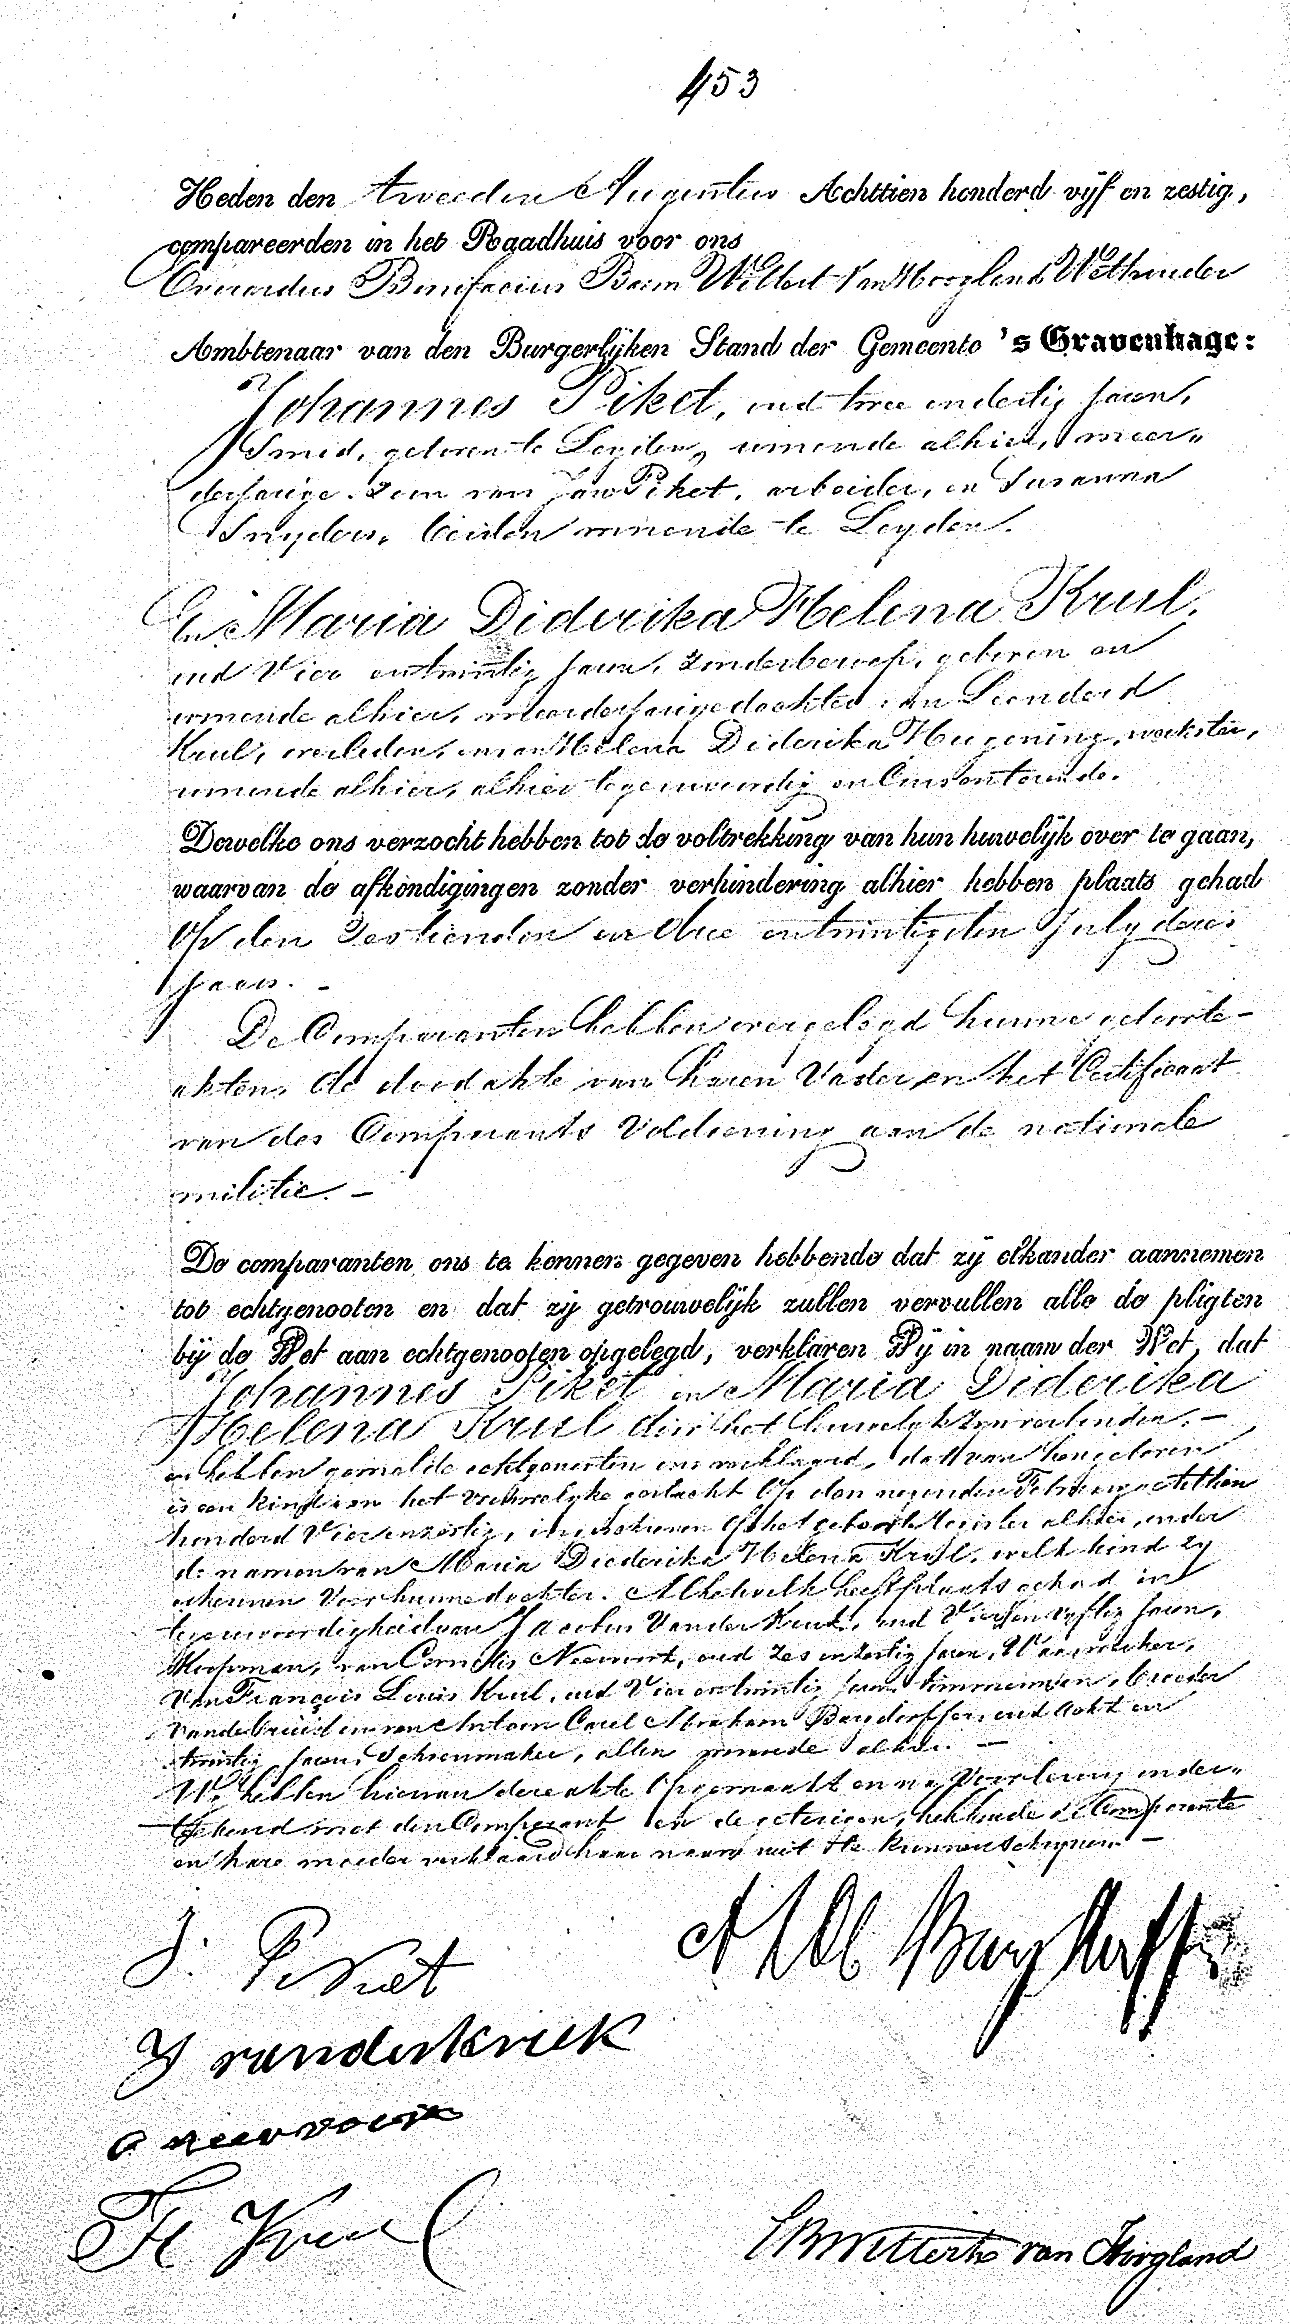 453
Heden den tweeden Augustus Achttien honderd vijf en zestig,
compareerden in het Raadhuis voor ons
Everardus Bonifacius Baron Wittert van Hoogland Wethouder
Ambtenaar van den Burgerlijken Stand der Gemeente 's Gravenhage:
Johannes Piket, oud twee en dertig Jaren,
Smid, geboren te Leyden, wonende alhier, meer-
derjarige zoon van Jan Piket, arbeider, en Susanna
Snyders, beiden wonende te Leyden.
En Maria Diderika Helena Krul,
oud Vier en twintig Jaren, zonder beroep, geboren en
wonende alhier, meerderjarige dochter van Leendert
Krul, overleden, en van Helena Diderika Hugening, werkster,
wonende alhier, alhier tegenwoordig en Consenterende.
Dewelke ons verzocht hebben tot de voltrekking van hun huwelijk over te gaan,
waarvan de afkondigingen zonder verhindering alhier hebben plaats gehad
Op den Zestienden en drie en twintigsten July dezes
Jaars. -
De Comparanten hebben overgelegd hunne geboorte-
akten, de doodakte van haren Vader en het Certificaat
van des Comparants Voldoening aan de nationale
militie. -
De comparanten ons te kennen gegeven hebbende dat zij elkander aannemen
tot echtgenooten en dat zij getrouwelijk zullen vervullen alle de pligten
bij de Wet aan echtgenooten opgelegd, verklaren Wij in naam der Wet, dat
Johannes Piket en Maria Diderika
Helena Krul door het huwelyk zyn verbonden. -
en hebben gemelde echtgenooten ons verklaard, dat van hen geboren
is een kind van het vrouwelyke geslacht Op den negenden February achttien
honderd Vier en zestig, ingeschreven Op het geboorte register alhier, onder
de namen van Maria Diederika Helena Krul, welk kind zy
erkennen Voor hunne dochter. Al hetwelk heeft plaats gehad in
tegenwoordigheid van Jacobus Van der Kruk, oud Vier en vyftig Jaren,
Koopman, van Cornelis Neervoort, oud Zes en zestig Jaren, Waarmaker,
Van François Louis Krul, oud Vier en twintig Jaren, timmerman, broeder
van de bruid en van Antoon Carel Abraham Burgdorffer, oud Acht en
twintig Jaren, Schoenmaker, allen wonende alhier. -
Wy hebben hiervan deze akte Opgemaakt en na Voorlezing onder-
tekend met den Comparant en de getuigen, hebbende de Comparante
en hare moeder verklaard haar naam niet te kunnen schryven. -
J. Piket
J vanderkruk
C neervoort
FL Krul
EBWittert van Hoogland